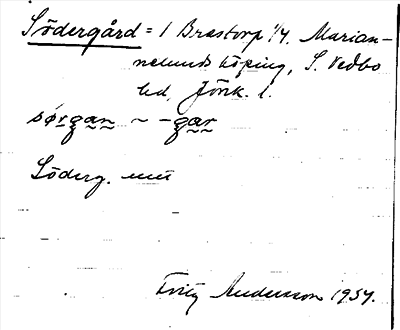 Södergård = 1 Brestorp 1/4, Marian-
nelunds köping, S. Vedbo
hd, Jönk. l.
sørgan ~ -gar
Söderg.
Andersson 1954.